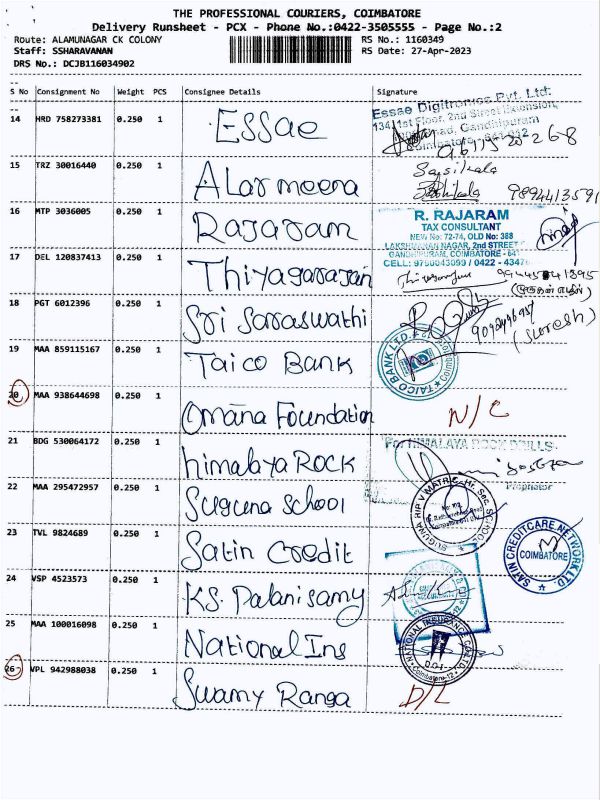 THE PROFESSIONAL COURIERS, COIMBATORE
Delivery Runsheet - PCX - Phone No.:0422-3505555 - Page No.:2
Route: ALAMUNAGAR CK COLONY RS No.: 1160349
Staff: SSHARAVANAN RS Date: 27-Apr-2023
DRS No.: DCJB116034902
S No Consignment No Weight PCS Consignee Details Signature
14 HRD 758273381 0.250 1 Essae
Essae Digitronics Pvt. Ltd.
134, 1st Floor, 2nd Street Extension,
Gandhipuram
15 TRZ 30016440 0.250 1 Alarmeera
Sasikala
16 MTP 3036005 0.250 1 Rajaram
R. RAJARAM
TAX CONSULTANT
NEW No: 72-74, OLD No: 388
LAKSHMANAN NAGAR, 2nd STREET
GANDHIPURAM, COIMBATORE - 641
17 DEL 120837413 0.250 1 Thiyagarajan
18 PGT 6012396 0.250 1 Sri Saraswathi
(Suresh)
19 MAA 859115167 0.250 1 Taico Bank
TAICO BANK LTD.
20 MAA 938644698 0.250 1 Omana Foundation N/C
21 BDG 530064172 0.250 1 himalaya ROCK
For HIMALAYA ROCK DRILLS
Proprietor
22 MAA 295472957 0.250 1 Suguna School
SUGUNA RIP V MATRIC Hr. Sec. SCHOOL
23 TVL 9824689 0.250 1 Satin Credit
SATIN CREDITCARE NETWORK LTD.
COIMBATORE
24 VSP 4523573 0.250 1 K.S. Palanisamy
25 MAA 100016098 0.250 1 National Ins
NATIONAL INSURANCE CO. LTD.
Coimbatore-12
26 VPL 942988038 0.250 1 Swamy Ranga D/L